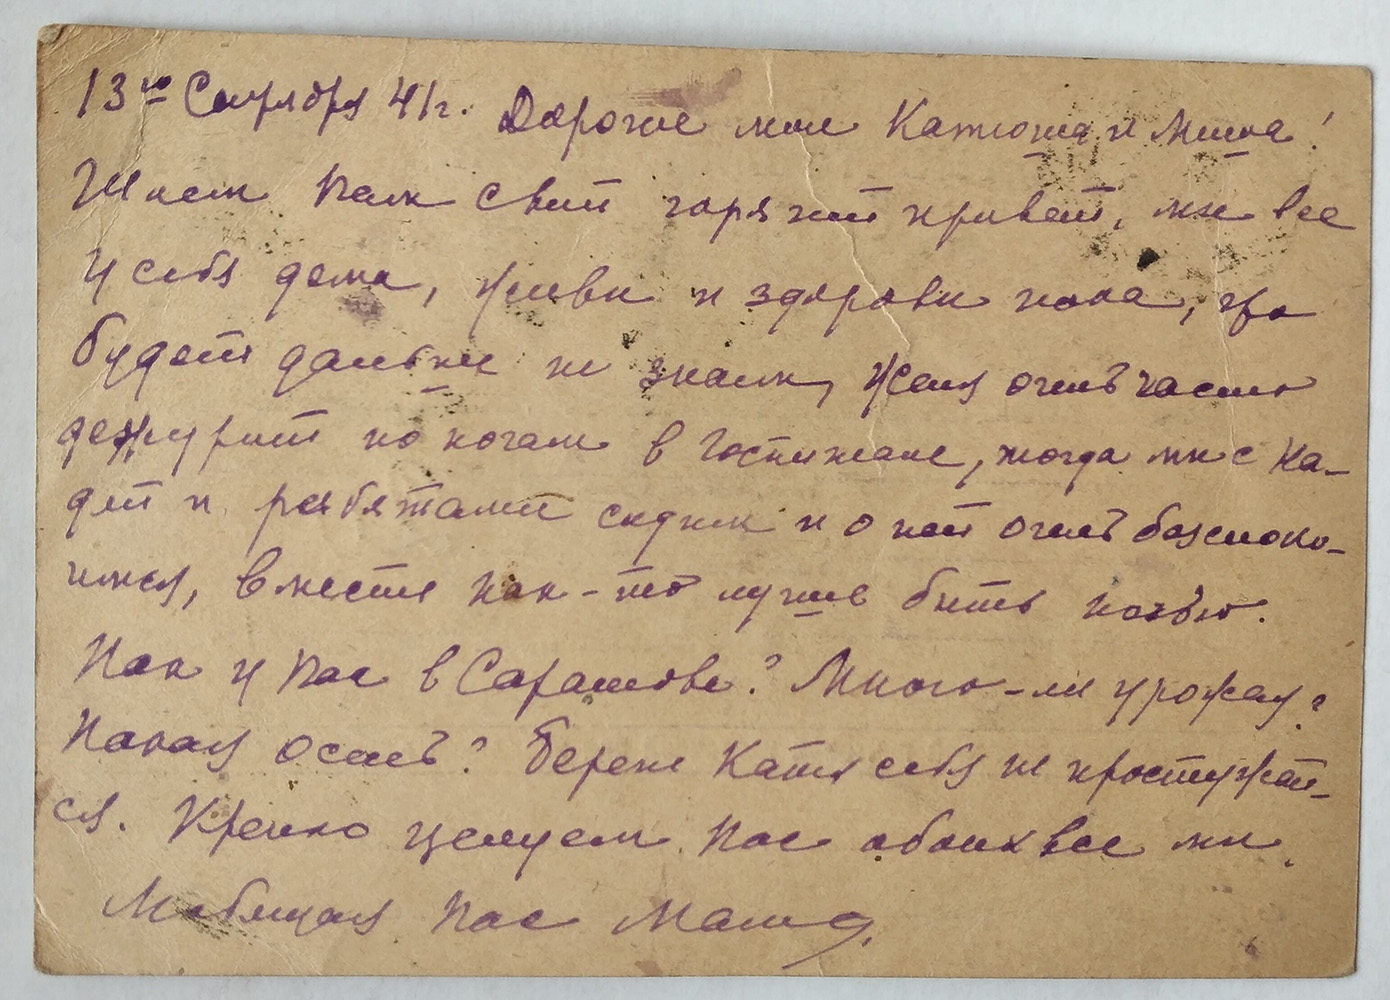 13го Сентября 41г. Дорогие мои Катюша и Миша!
Шлем Вам свой горячий привет, мы все
у себя дома, живы и здоровы пока, что
будет дальше не знаем, Женя очень часто
дежурит по ночам в госпитале, тогда мы с На-
дей и ребятами сидим и о ней очень безпоко-
имся, вместе как-то лучше быть ночью.
Как у Вас в Саратове? Много-ли урожая?
Какая осень? Береги Катя себя не простужай-
ся. Крепко целуем Вас обоих все мы.
Любящая Вас Мама.